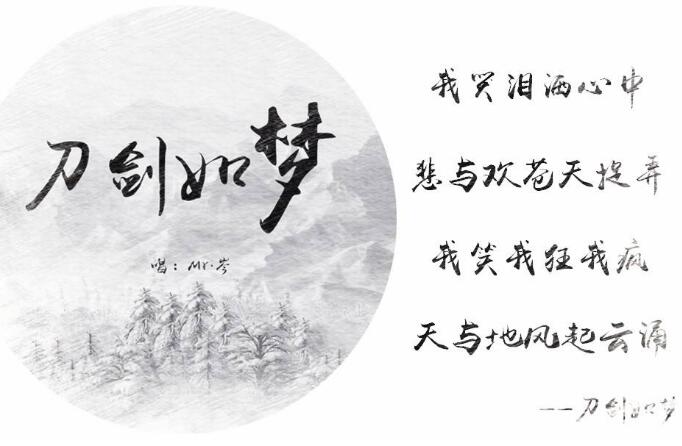 刀剑如梦
唱：Mr.岑
我哭泪洒心中
悲与欢苍天捉弄
我笑我狂我疯
天与地风起云涌
——刀剑如梦